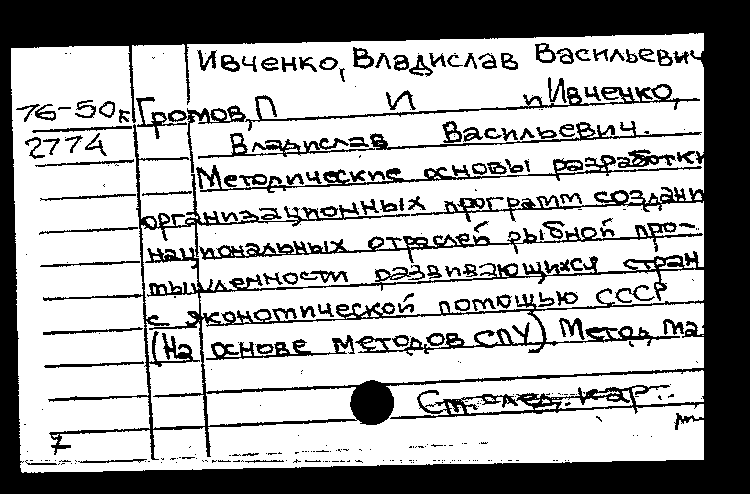 Ивченко, Владислав Васильевич
76-50к Громов, П И п Ивченко,
2774 Владислав Васильевич.
Методические основы разработки
организационных програтт создани
национальных отраслей рыбной про-
тышленности развивающихся стран
с экономической помощью СССР
(На основе методов СПУ). Метод. та-
См. след. кар..
7